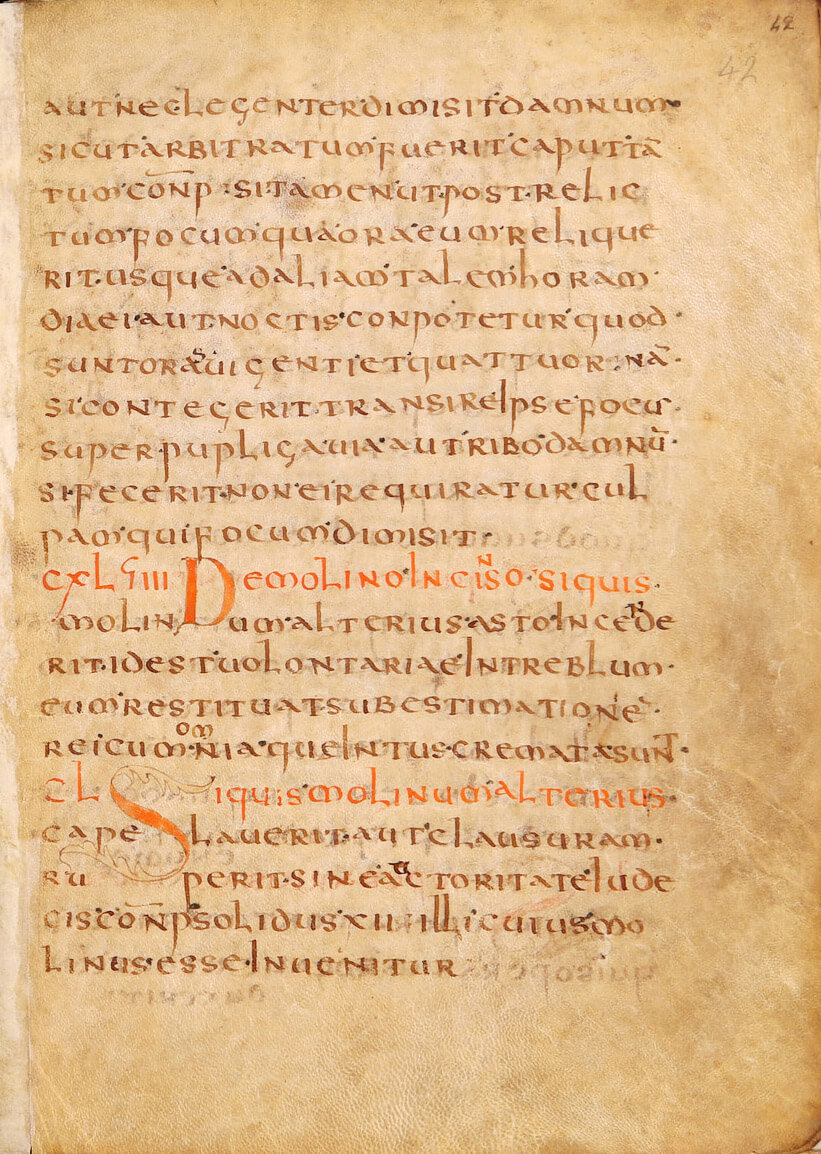 42
42
AUT NECLEGENTER DIMISIT DAMNUM
SICUT ARBITRATUM FUERIT CAPUT TĀ
TUM CON̄P · SI TAMEN UT POST RELIC
TUM FOCUM QUA ORA EUM RELIQUE
RIT · USQUE AD ALIAM TALEM HORAM ·
DIAEI AUT NOCTIS CONPOTETUR QUOD ·
SUNT ORAˢ UIGENTI ET QUATTUOR · NĀ ·
SI CONTEGERIT TRANSIRE IPSE FOCUS ·
SUPER PUPLIGA UIA AUT RIBO DAMNŪ ·
SI FECERIT · NON EI REQUIRATUR CUL
PAM QUI FOCUM DIMISIT ·
CXLVIIII DE MOLINO INCISⁿO · SI QUIS ·
MOLINDUM ALTERIUS ASTO INCEⁿDE
RIT · ID EST UOLONTARIAE INTREBLUM ·
EUM RESTITUAT SUB ESTIMATIONE ·
REI CUM ᵒᵐNIA QUE INTUS CREMATA SUNT ·
CL SI QUIS MOLINUM ALTERIUS ·
CAPELLAUERIT · AUT CLAUSURAM ·
RUPERIT · SINE AᵘCTORITATE IUDE
CIS CON̄P SOLIDUS XII · ILLI CUIUS MO
LINUS ESSE INUENITUR